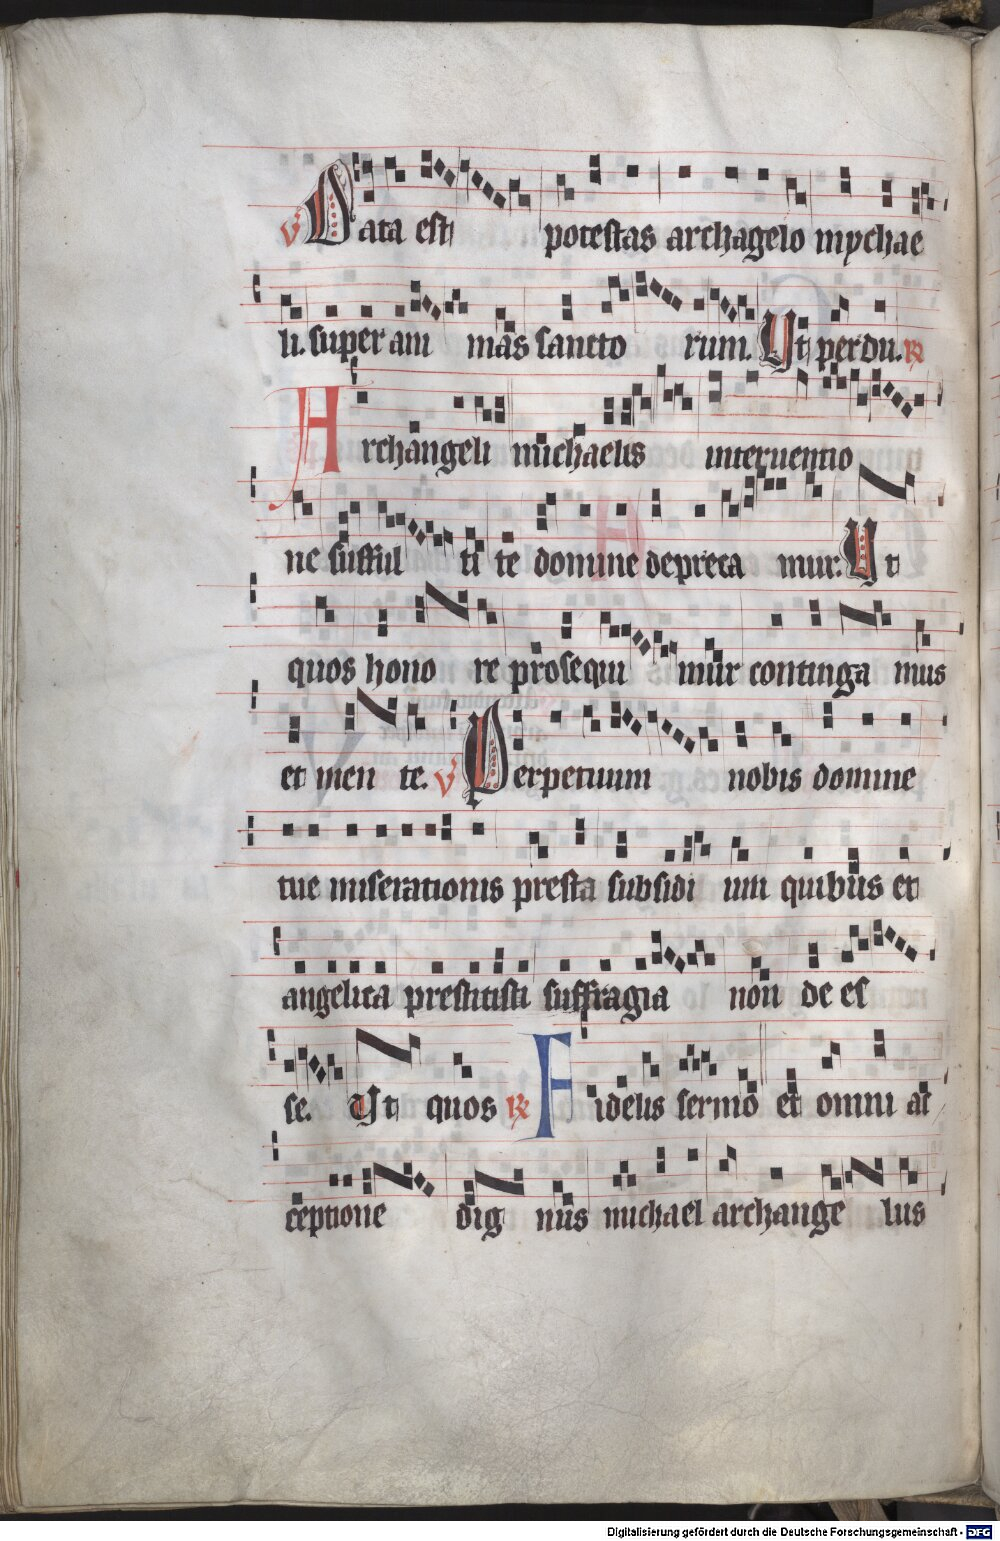 V Data est potestas archagelo mychae
li. super ani mas sancto rum. Ut perdu. R
Archangeli michaelis interuentio
ne sufful ti te domine depreca mur. Ut
quos hono re prosequi mur continga mus
et men te. V Perpetuum nobis domine
tue miserationis presta subsidi um quibus et
angelica prestitisti suffragia non de es
se. Ut quos R Fidelis sermo et omni ac
ceptione dig nus michael archange lus
Digitalisierung gefördert durch die Deutsche Forschungsgemeinschaft - DFG